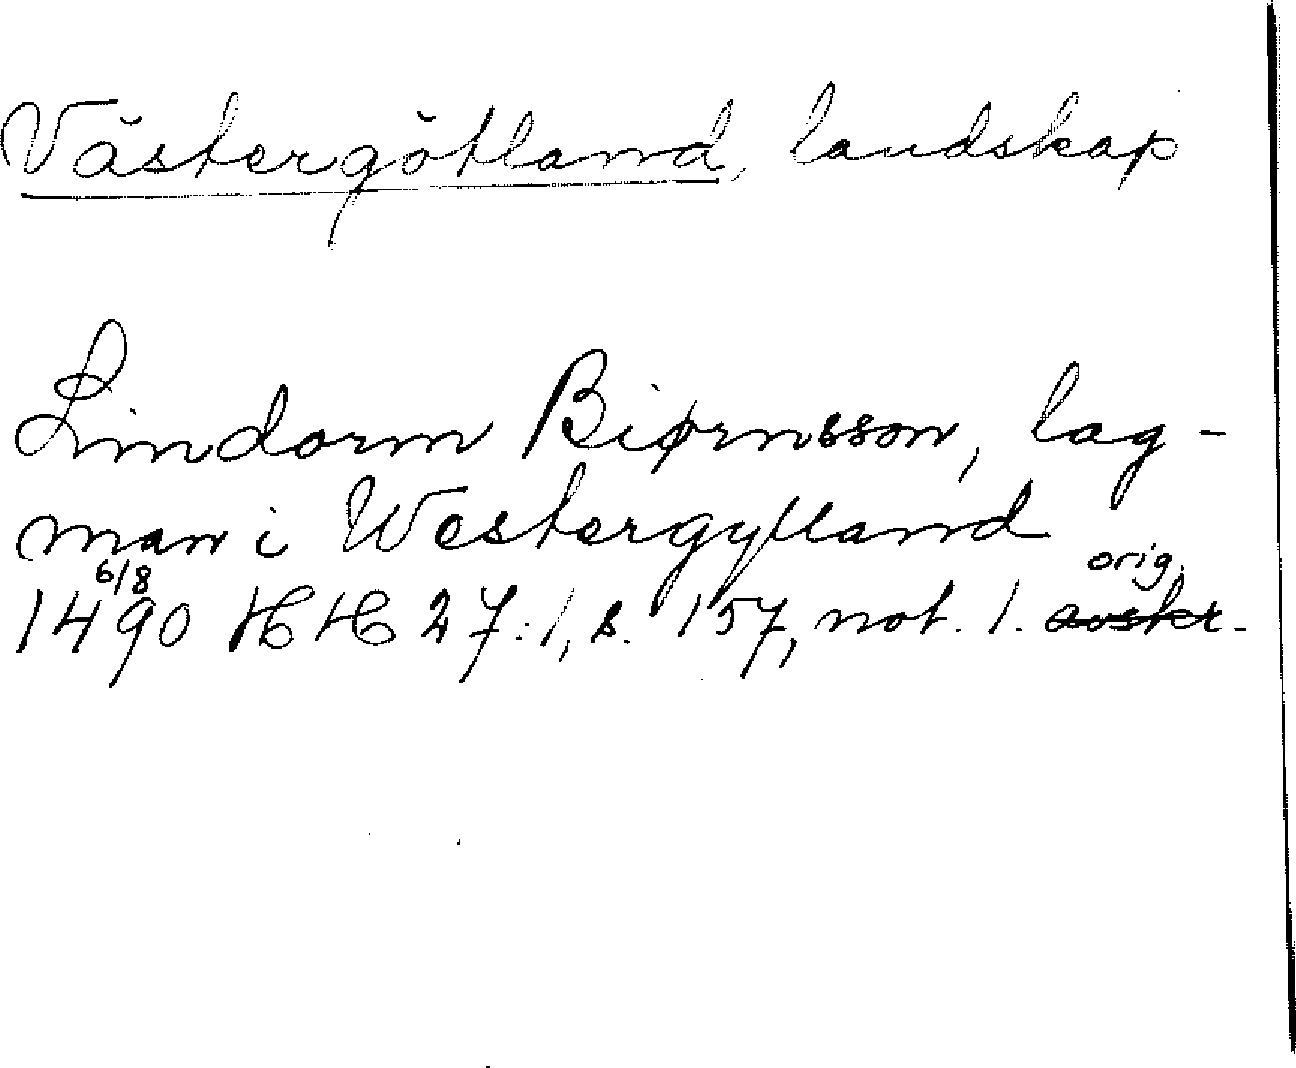 Västergötland, landskap
Lindorm Biørnsson, lag-
man i Westergytland
6/8 orig.
1490 HH 27:1, s. 157, not. 1. avskr.